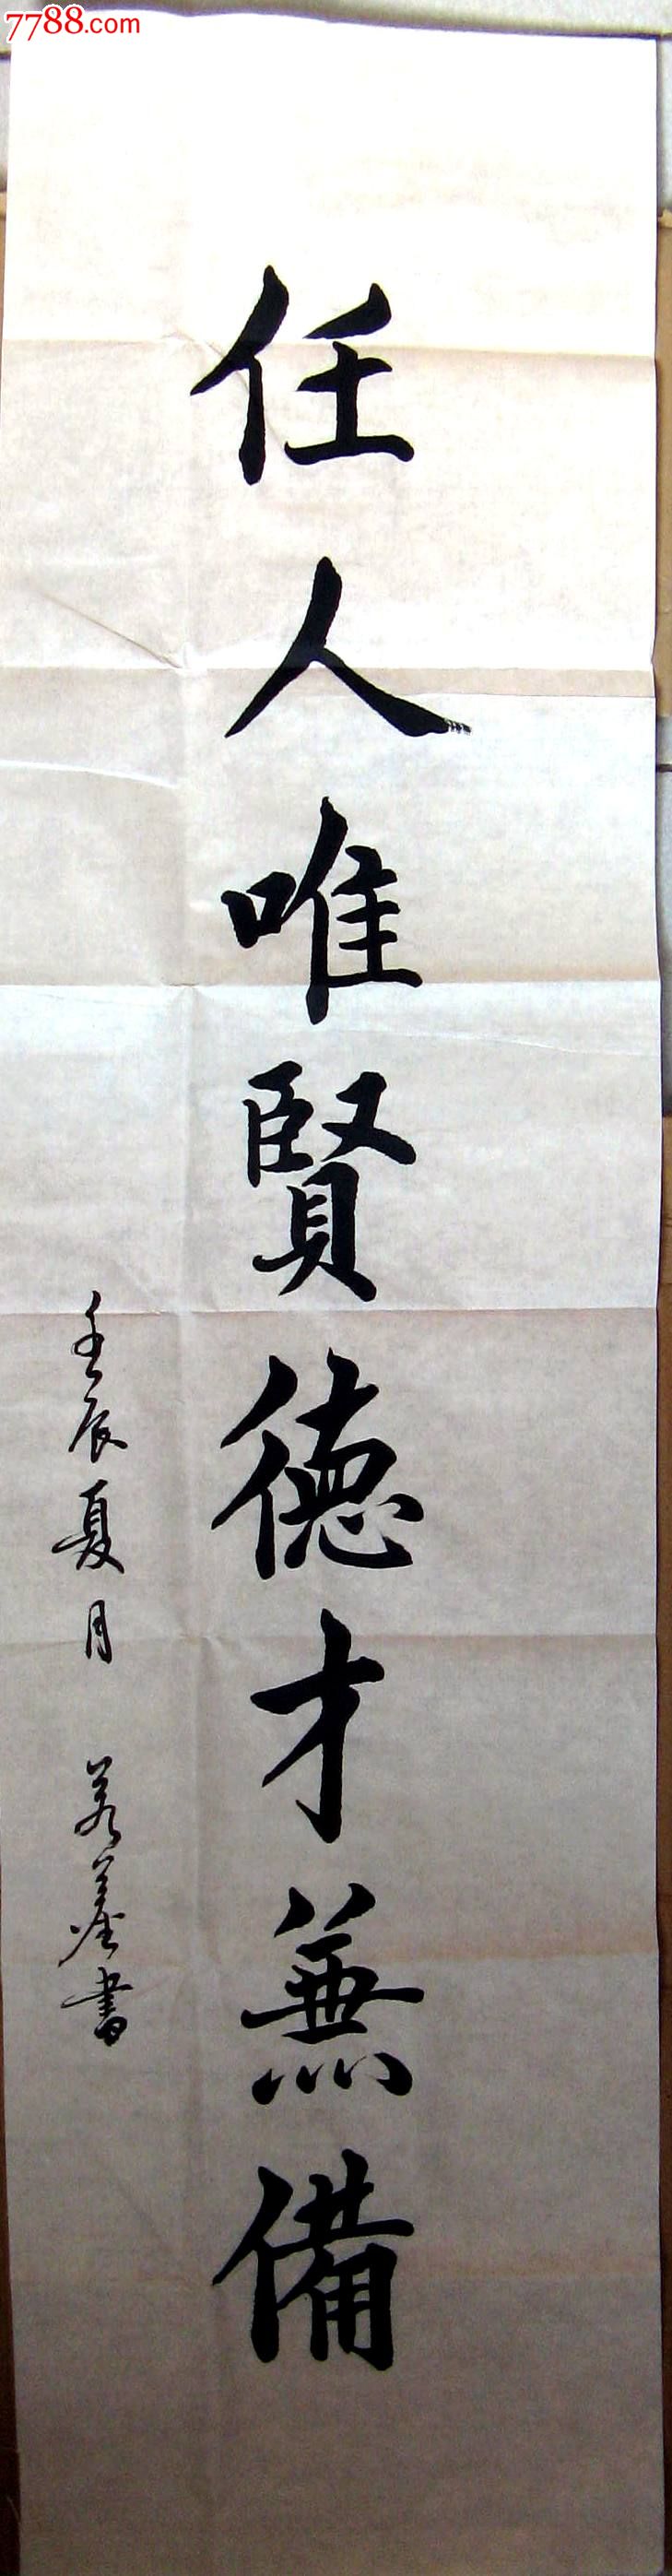 7788.com
任人唯賢德才兼備
壬辰夏月 書